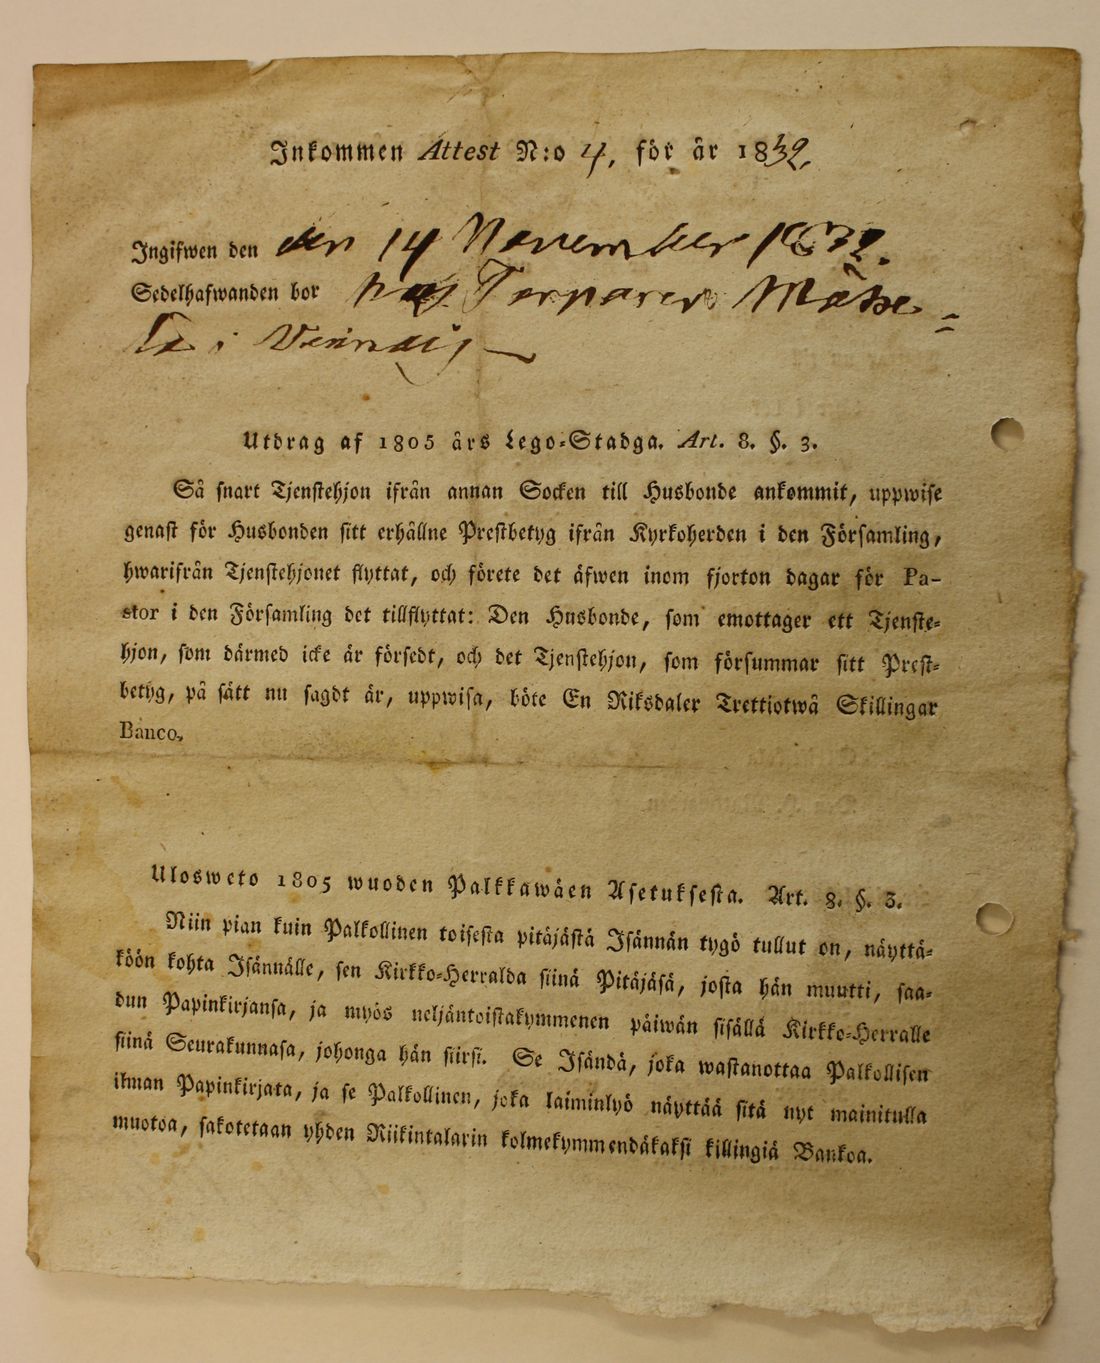 Inkommen Attest N:o 4, för år 1832.
Ingifwen den den 14 November 1832.
Sedelhafwanden bor hos Torparen
i
Utdrag af 1805 års Lego-Stadga. Art. 8. §. 3.
Så snart Tjenstehjon ifrån annan Socken till Husbonde ankommit, uppwise
genast för Husbonden sitt erhållne Prestbetyg ifrån Kyrkoherden i den Församling,
hwarifrån Tjenstehjonet flyttat, och förete det äfwen inom fjorton dagar för Pa-
stor i den Församling det tillflyttat: Den Husbonde, som emottager ett Tjenste-
hjon, som därmed icke är försedt, och det Tjenstehjon, som försummar sitt Prest-
betyg, på sätt nu sagdt är, uppwisa, böte En Riksdaler Trettiotwå Skillingar
Banco.
Ulosweto 1805 wuoden Palkkawäen Asetuksesta. Art. 8. §. 3.
Niin pian kuin Palkollinen toisesta pitäjästä Isännän tygö tullut on, näyttä-
köön kohta Isännälle, sen Kirkko-Herralda siinä Pitäjäsä, josta hän muutti, saa-
dun Papinkirjansa, ja myös neljäntoistakymmenen päiwän sisällä Kirkko-Herralle
siinä Seurakunnasa, johonga hän siirsi. Se Isändä, joka wastanottaa Palkollisen
ilman Papinkirjata, ja se Palkollinen, joka laiminlyö näyttää sitä nyt mainitulla
muotoa, sakotetaan yhden Riikintalarin kolmekymmendäkaksi killingiä Bankoa.